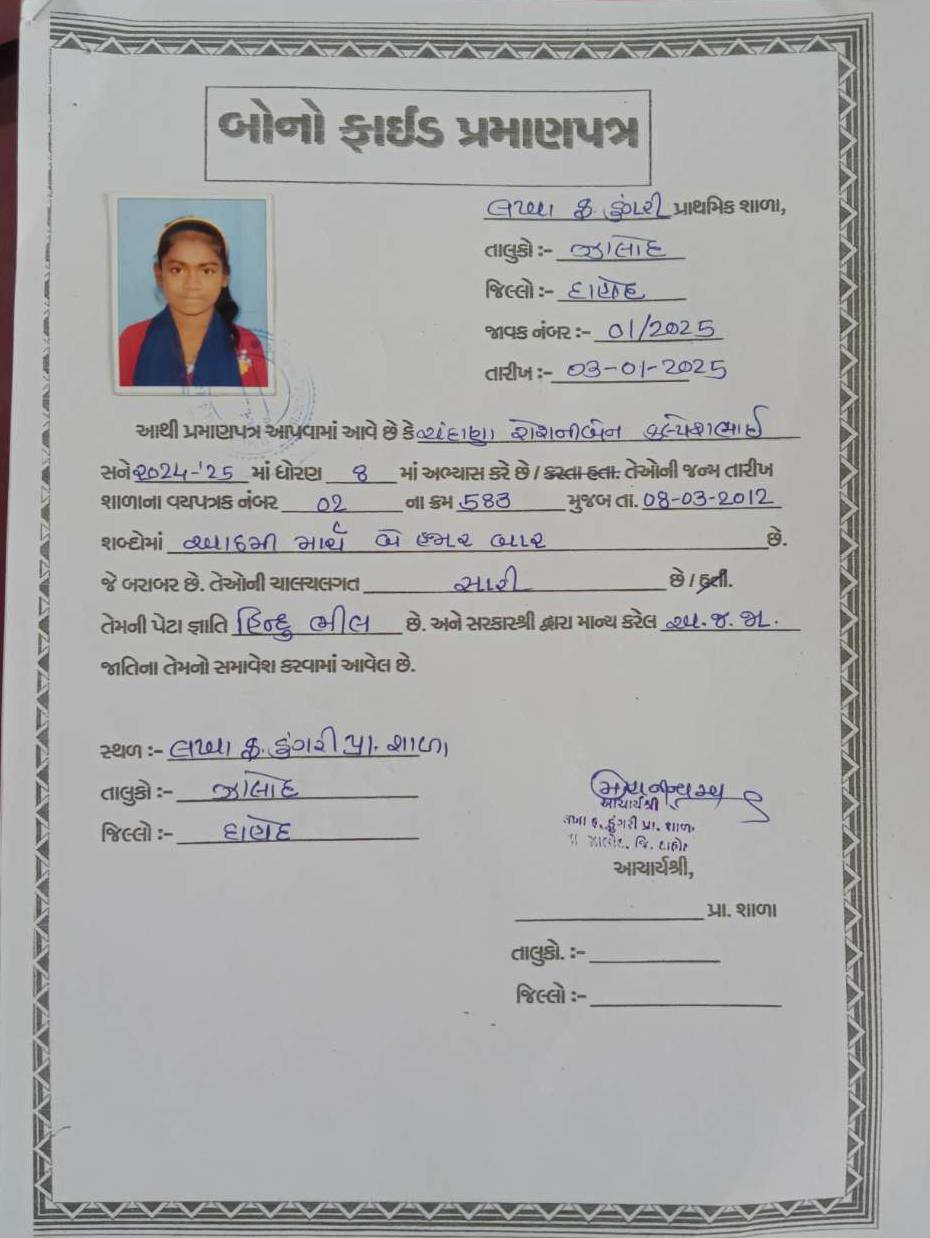 બોનો ફાઈડ પ્રમાણપત્ર
લખા ફ. ડુંગરી પ્રાથમિક શાળા,
તાલુકો :- ઝાલોદ
જિલ્લો :- દાહોદ
જાવક નંબર :- 01/2025
તારીખ :- 03-01-2025
આથી પ્રમાણપત્ર આપવામાં આવે છે કે ચંદાણા રોશનીબેન કલ્પેશભાઈ
સને ૨૦24-'25 માં ધોરણ 8 માં અભ્યાસ કરે છે / કરતા હતા. તેઓની જન્મ તારીખ
શાળાના વયપત્રક નંબર 02 ના ક્રમ 583 મુજબ તા. 08-03-2012
શબ્દોમાં આઠમી માર્ચ બે હજાર બાર છે.
જે બરાબર છે. તેઓની ચાલચલગત સારી છે / હતી.
તેમની પેટા જ્ઞાતિ હિન્દુ ભીલ છે. અને સરકારશ્રી દ્વારા માન્ય કરેલ અ.જ.જા.
જાતિના તેમનો સમાવેશ કરવામાં આવેલ છે.
સ્થળ :- લખા ફ. ડુંગરી પ્રા. શાળા
તાલુકો :- ઝાલોદ
જિલ્લો :- દાહોદ
આચાર્યશ્રી
લખા ફ. ડુંગરી પ્રા. શાળા
તા ઝાલોદ, જિ. દાહોદ
આચાર્યશ્રી,
પ્રા. શાળા
તાલુકો. :-
જિલ્લો :-